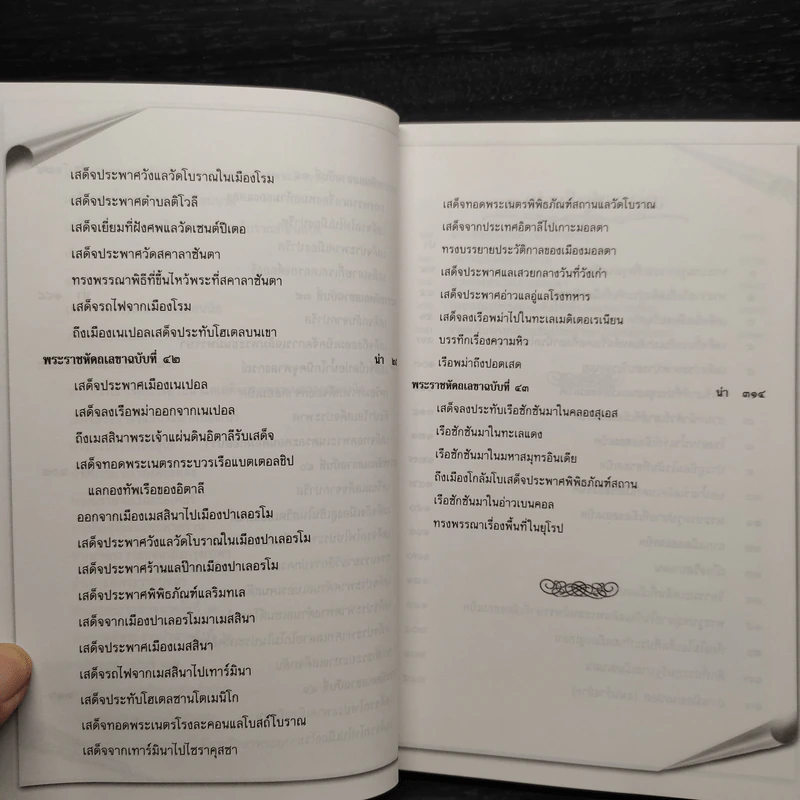 เสด็จประพาศวังแลวัดโบราณในเมืองโรม
เสด็จประพาศตำบลติโวลี
เสด็จเยี่ยมที่ฝังศพแลวัดเซนต์ปีเตอ
เสด็จประพาศวัดสคาลาซันตา
ทรงพรรณาพิธีที่ขึ้นไหว้พระที่สคาลาซันตา
เสด็จรถไฟจากเมืองโรม
ถึงเมืองเนเปอลเสด็จประทับโฮเตลบนเขา
พระราชหัตถเลขาฉบับที่ ๔๒ น่า
เสด็จประพาศเมืองเนเปอล
เสด็จลงเรือพม่าออกจากเนเปอล
ถึงเมสสินาพระเจ้าแผ่นดินอิตาลีรับเสด็จ
เสด็จทอดพระเนตรกระบวรเรือแบตเตอลชิป
แลกองทัพเรือของอิตาลี
ออกจากเมืองเมสสินาไปเมืองปาเลอรโม
เสด็จประพาศวังแลวัดโบราณในเมืองปาเลอรโม
เสด็จประพาศร้านแลป๊ากเมืองปาเลอรโม
เสด็จประพาศพิพิธภัณฑ์แลริมทเล
เสด็จจากเมืองปาเลอรโมมาเมสสินา
เสด็จประพาศเมืองเมสสินา
เสด็จรถไฟจากเมสสินาไปเทาร์มินา
เสด็จประทับโฮเตลซานโดเมนิโก
เสด็จทอดพระเนตรโรงละคอนแลโบสถ์โบราณ
เสด็จจากเทาร์มินาไปไซราคุสซา
เสด็จทอดพระเนตรพิพิธภัณฑ์สถานแลวัดโบราณ
เสด็จจากประเทศอิตาลีไปเกาะมอลตา
ทรงบรรยายประวัติกาลของเมืองมอลตา
เสด็จประพาศแลเสวยกลางวันที่วังเก่า
เสด็จประพาศอ่าวแลอู่แลโรงทหาร
เสด็จลงเรือพม่าไปในทะเลเมดิเตอเรเนียน
บรรทึกเรื่องความหิว
เรือพม่าถึงปอตเสด
พระราชหัตถเลขาฉบับที่ ๔๓ น่า ๓๑๔
เสด็จลงประทับเรือซักซันมาในคลองสุเอส
เรือซักซันมาในทะเลแดง
เรือซักซันมาในมหาสมุทรอินเดีย
ถึงเมืองโกลัมโบเสด็จประพาศพิพิธภัณฑ์สถาน
เรือซักซันมาในอ่าวเบนคอล
ทรงพรรณาเรื่องพื้นที่ในยุโรป